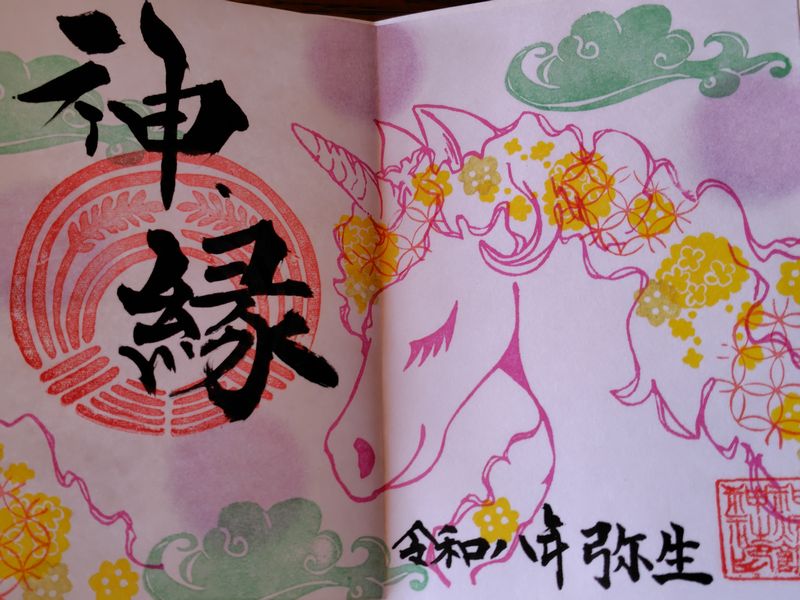 神縁
令和八年 弥生